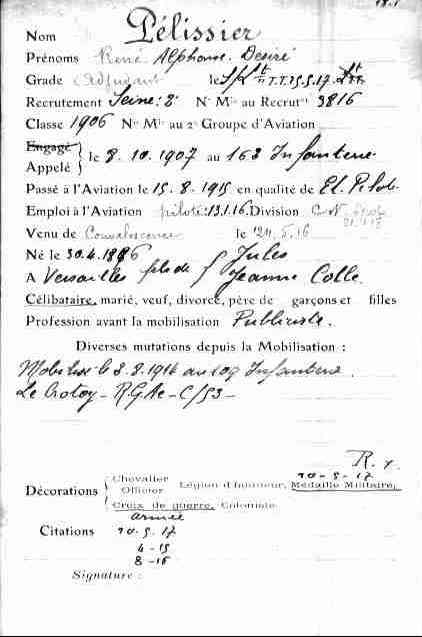 Nom Pélissier
Prénoms René Alphonse Désiré
Grade Adjudant le S/Lt T.T. 25.5.17
Recrutement Seine: 2e No Mle au Recrut 3816
Classe 1906 No Mle au 2e Groupe d'Aviation
Engagé
Appelé } le 8.10.1907 au 163 Infanterie
Passé à l'Aviation le 15.8.1915 en qualité de El. Pilote
Emploi à l'Aviation pilote: 13.1.16 Division
Venu de Convalescence le 24.5.16
Né le 30.4.1886 Jules
A Versailles fils de Jeanne Colle
Célibataire, marié, veuf, divorcé, père de garçons et filles
Profession avant la mobilisation Publiciste.
Diverses mutations depuis la Mobilisation :
Mobilisé le 3.8.1914 au 109 Infanterie
Le Crotoy - R.G.Ae - C/53 -
10-5-17
Décorations { Chevalier Officier Légion d'honneur, Médaille Militaire,
Croix de guerre, Coloniale
Armée
Citations 10.5.17
4-15
8-16
Signature :